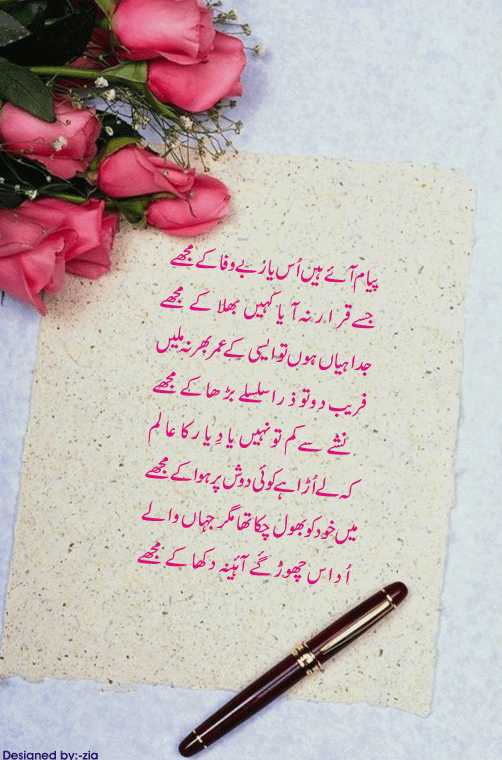 پیام آئے ہیں اُس یار بے وفا کے مجھے
جسے قرار نہ آیا کہیں بھلا کے مجھے
جدایاں ہوں تو ایسی کے عمر بھر نہ ملیں
فریب دو تو ذرا سلسلے بڑھا کے مجھے
نشے سے کم تو نہیں یادِ یار کا عالم
کہ لے اُڑا ہے کوئی دوش پر ہوا کے مجھے
میں خود کو بھول چکا تھا مگر جہاں والے
اُداس چھوڑ گئے آئینہ دکھا کے مجھے
Designed by:-zia